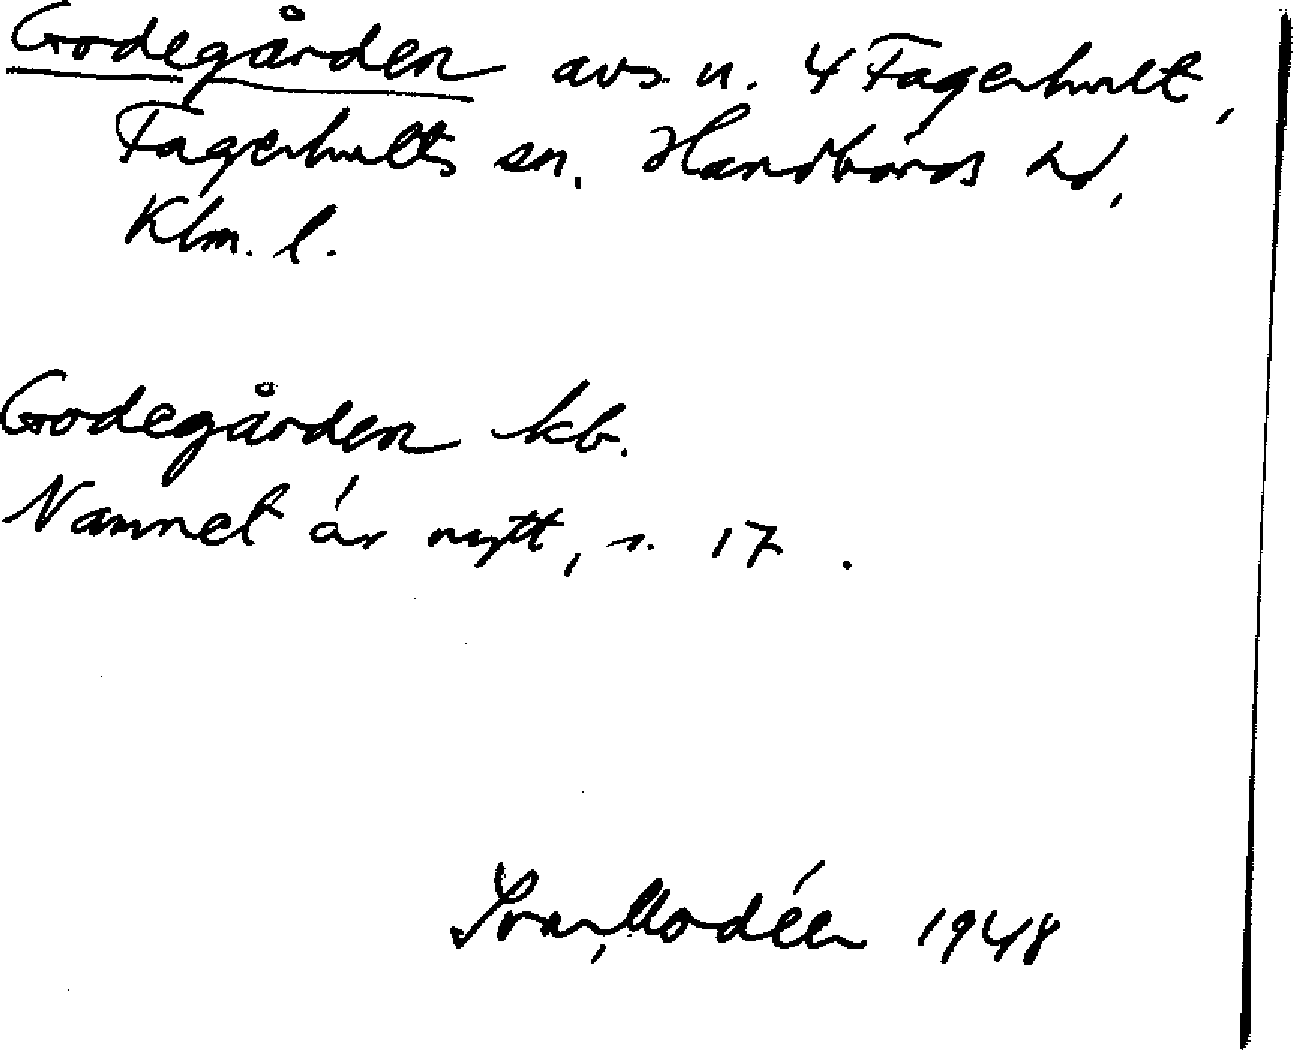 Godegården avs. u. 4 Fagerhult,
Fagerhults sn. Handbörds hd,
Klm. l.
Godegården kb.
Namnet är nytt, s. 17 .
Ivar Modéer 1948